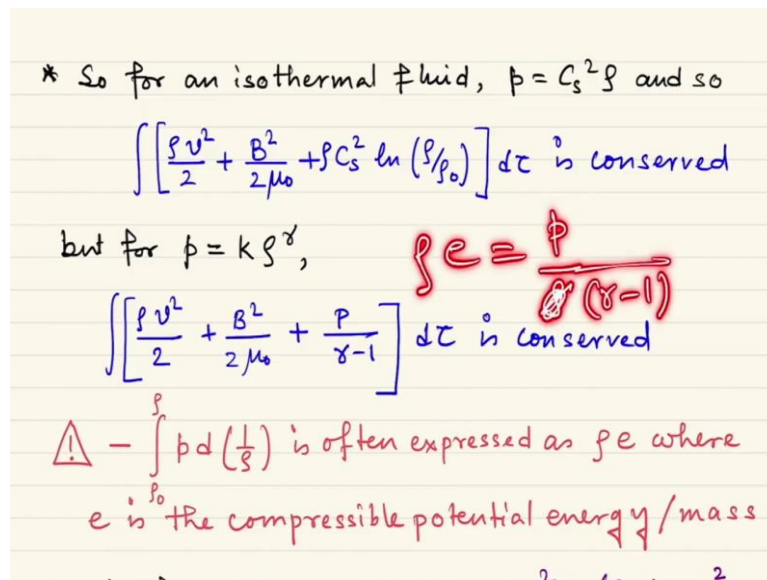 * So for an isothermal fluid, p = Cs²ρ and so
∫[ρv²/2 + B²/2μ₀ + ρCs² ln(ρ/ρ₀)] dτ is conserved
but for p = kρ^γ,
ρe = p/(γ-1)
∫[ρv²/2 + B²/2μ₀ + p/γ-1] dτ is conserved
⚠ - ∫_ρ₀^ρ p d(1/ρ) is often expressed as ρe where
e is the compressible potential energy/mass